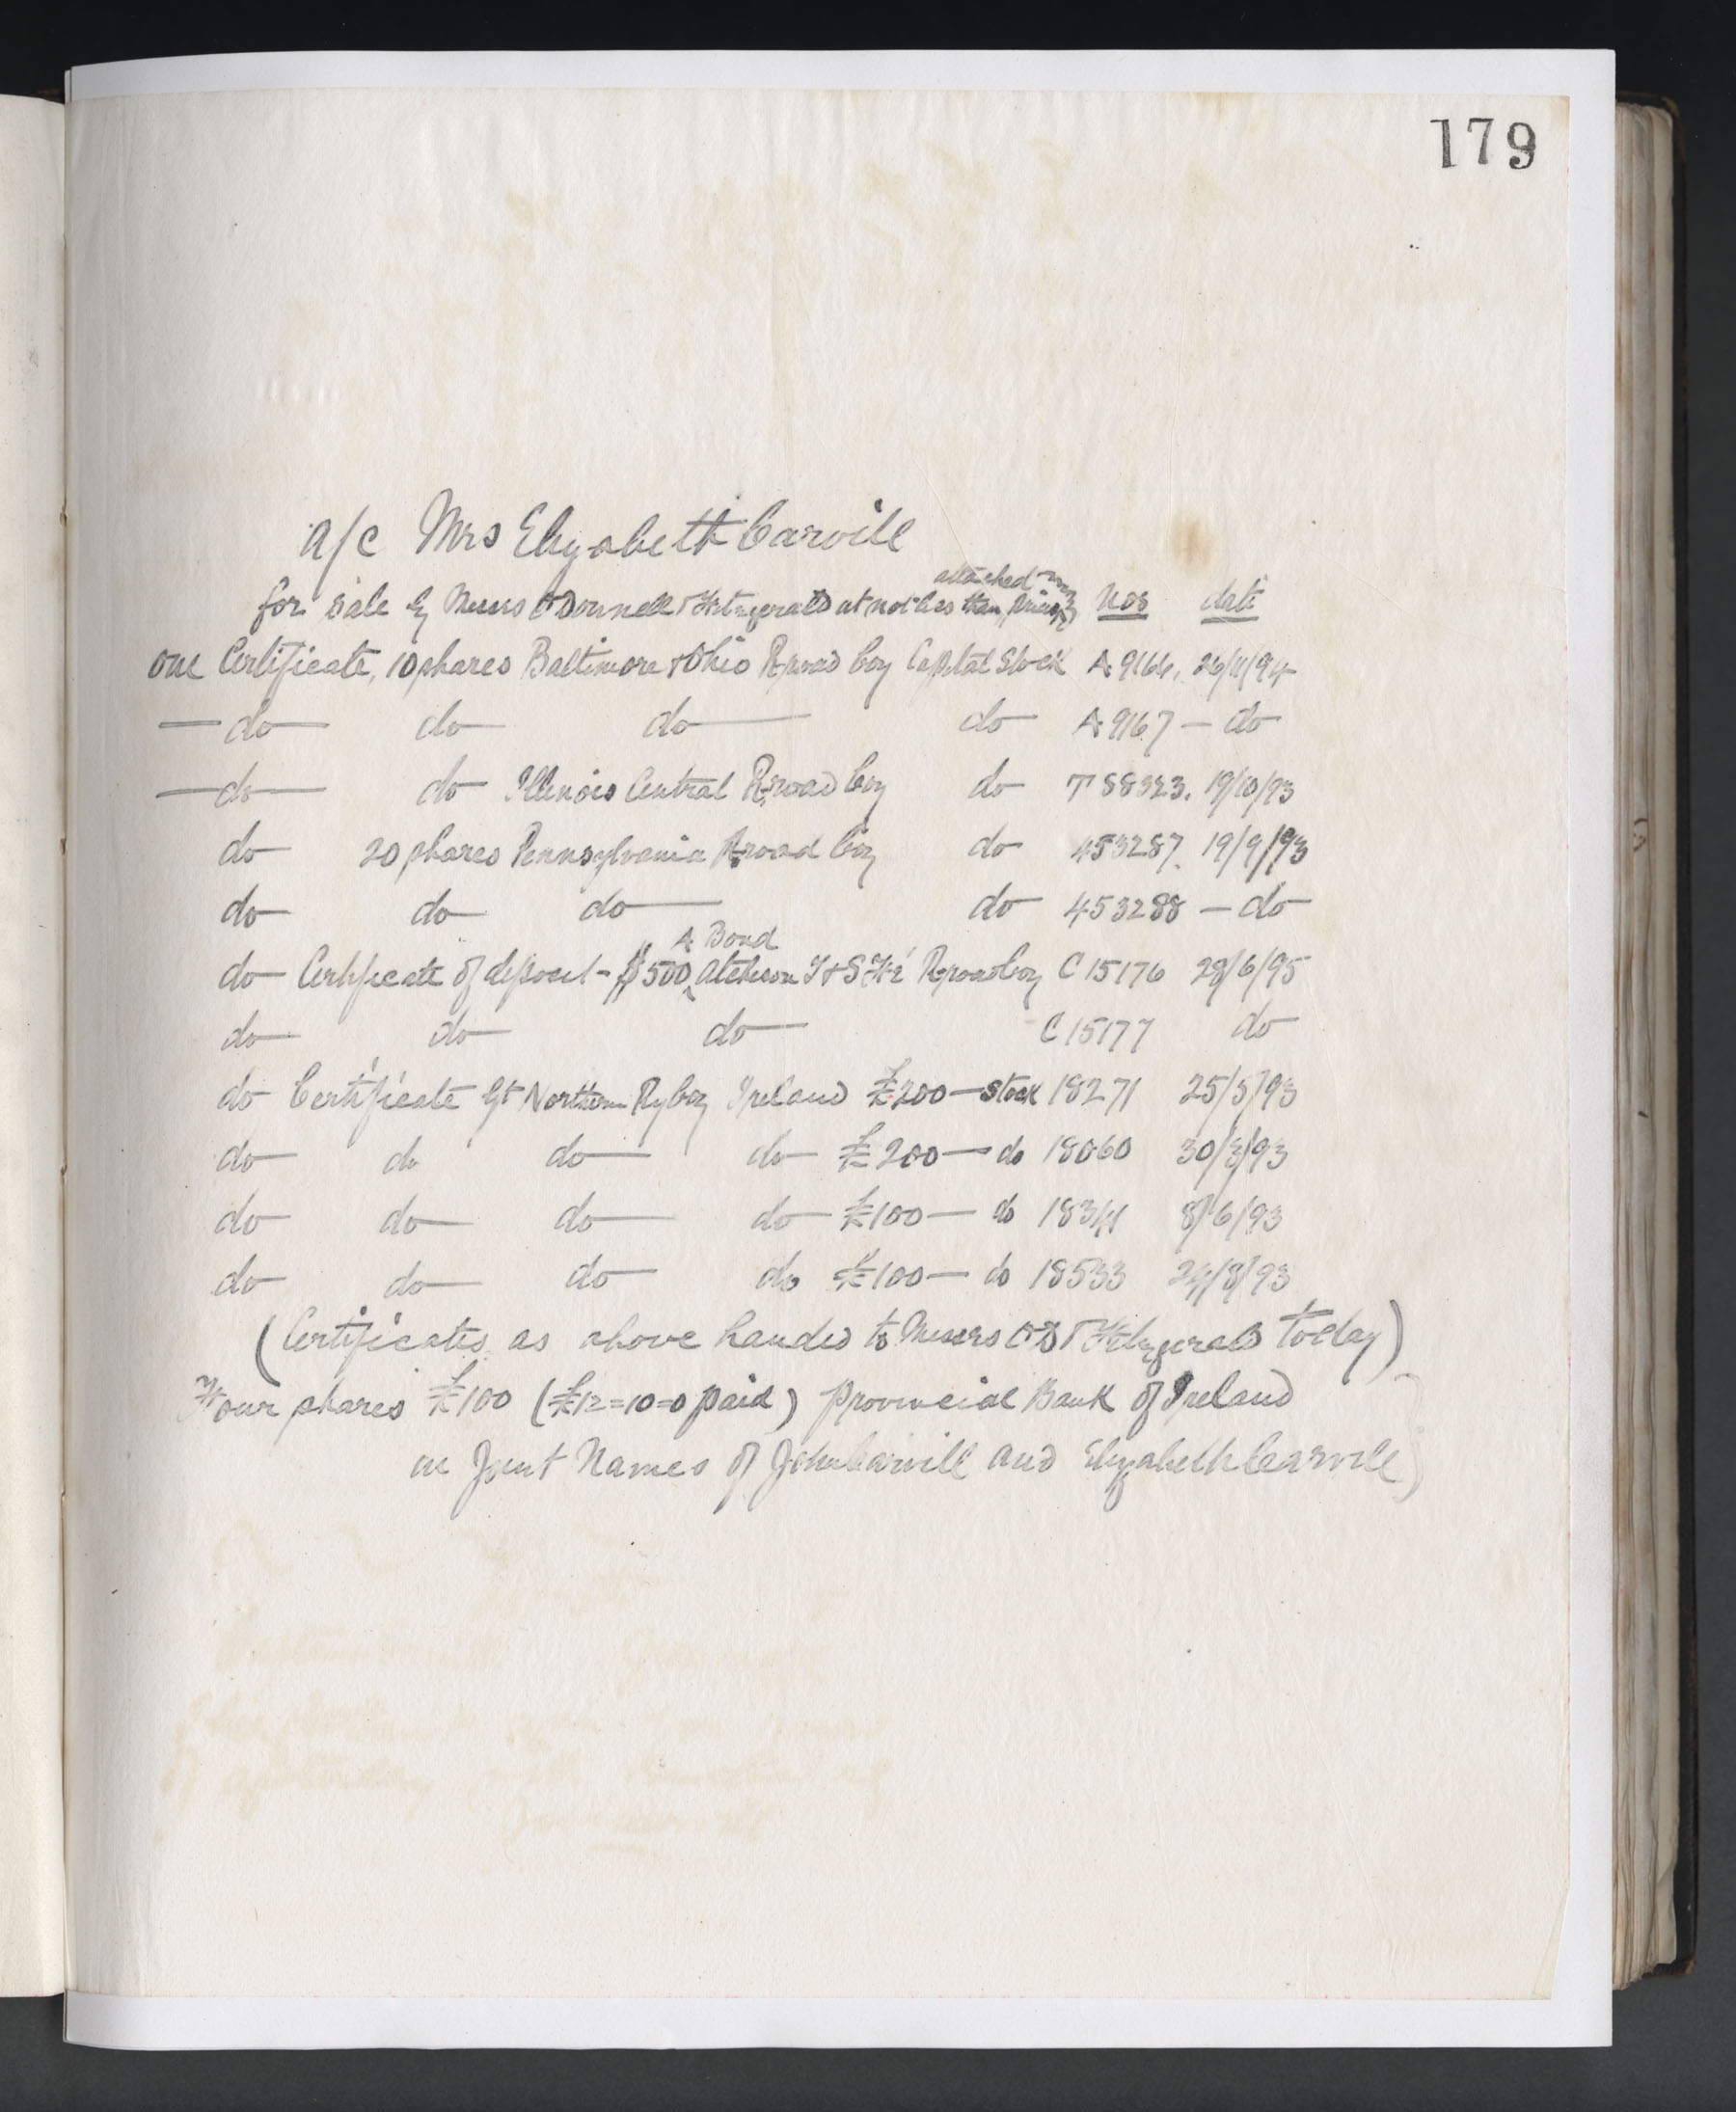 179
a/c Mrs Elizabeth Carvill
attached
for sale by Messrs O'Donnell & Fitzgerald at not less than prices Nos date
one Certificate, 10 shares Baltimore & Ohio R.road Coy Capital Stock A 9166, 26/11/94
— do — do do — do A 9167 — do
— do — do Illinois Central R.road Coy do T 88323. 19/10/93
do 20 shares Pennsylvania R.road Coy do 453287. 19/9/93
do do do — do 453288 — do
A Bond
do Certificate of deposit - $500 Atcheson T & S Fé R.road Coy C 15176 28/6/95
do do do — C 15177 do
do Certificate Gt Northern Ry Coy Ireland £200 — stock 18271 25/5/93
do do do — do £200 — do 18060 30/3/93
do do do — do £100 — do 18341 8/6/93
do do do do £100 — do 18533 24/8/93
(Certificates as above handed to Messrs O'D & Fitzgerald today)
Four shares £100 (£12=10=0 paid) Provincial Bank of Ireland
in Joint Names of John Carvill and Elizabeth Carvill